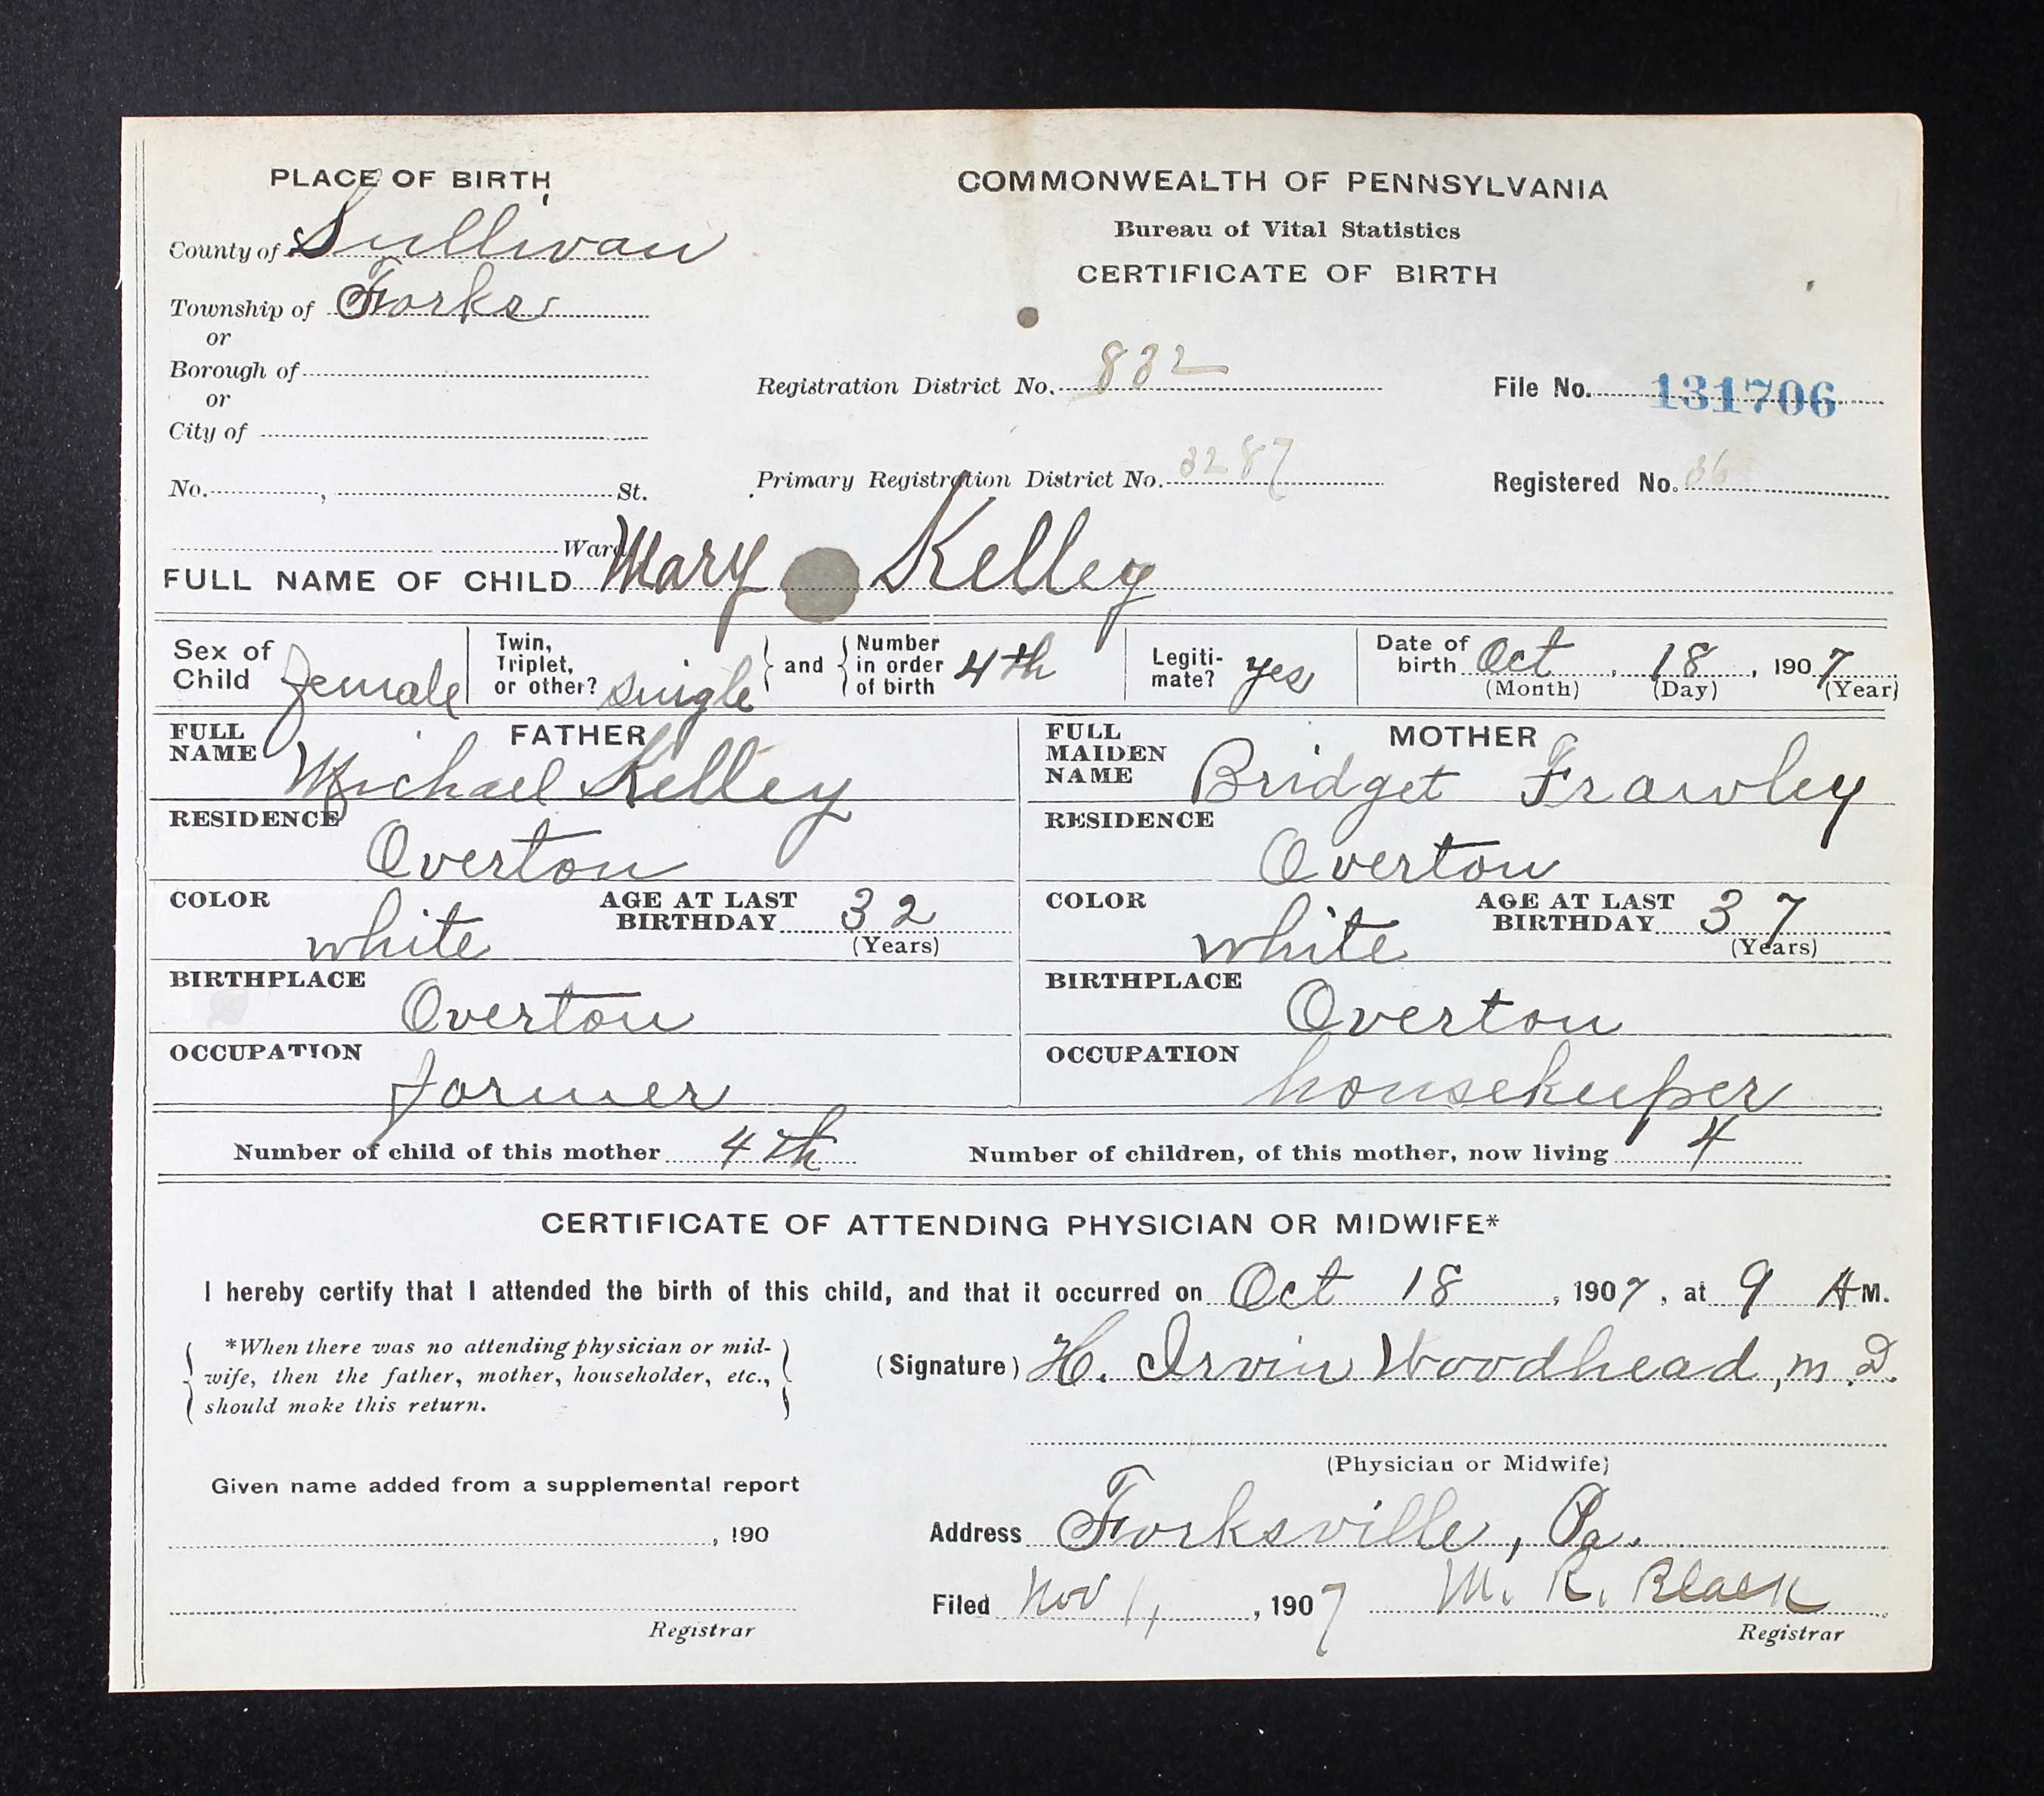 PLACE OF BIRTH
COMMONWEALTH OF PENNSYLVANIA
Bureau of Vital Statistics
CERTIFICATE OF BIRTH
County of Sullivan
Township of Forks
or
Borough of
or
City of
Registration District No. 832
File No. 131706
No. , St.
Primary Registration District No. 3287
Registered No. 36
Ward
FULL NAME OF CHILD Mary Kelley
Sex of Child female
Twin, Triplet, or other? single
and
Number in order of birth 4th
Legiti-mate? yes
Date of birth Oct, 18, 1907
(Month) (Day) (Year)
FATHER
FULL NAME Michael Kelley
RESIDENCE
Overton
COLOR white
AGE AT LAST BIRTHDAY 32
(Years)
BIRTHPLACE
Overton
OCCUPATION
farmer
MOTHER
FULL MAIDEN NAME Bridget Frawley
RESIDENCE
Overton
COLOR white
AGE AT LAST BIRTHDAY 37
(Years)
BIRTHPLACE
Overton
OCCUPATION
housekeeper
Number of child of this mother 4th
Number of children, of this mother, now living 4
CERTIFICATE OF ATTENDING PHYSICIAN OR MIDWIFE*
I hereby certify that I attended the birth of this child, and that it occurred on Oct 18, 1907, at 9 AM.
*When there was no attending physician or mid-
wife, then the father, mother, householder, etc.,
should make this return.
(Signature) H. Irvin Woodhead, M.D.
(Physician or Midwife)
Given name added from a supplemental report
, 190
Registrar
Address Forksville, Pa.
Filed Nov 1, 1907 M. R. Black
Registrar